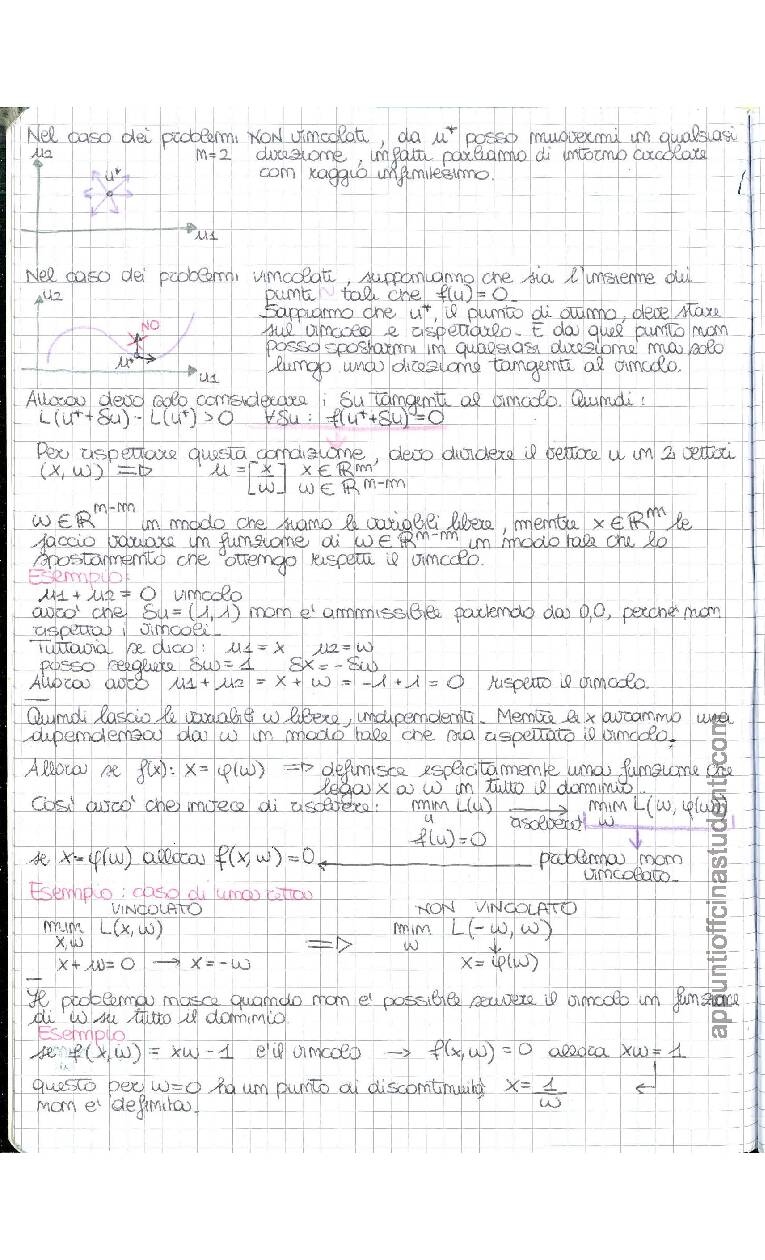 Nel caso dei problemi NON vincolati, da u* posso muovermi in qualsiasi
u2 m=2 direzione, infatti parliamo di intorno circolare
u* con raggio infinitesimo.
u1
Nel caso dei problemi vincolati, supponiamo che sia l'insieme dei
u2 punti tali che f(u)=0.
Sappiamo che u*, il punto di ottimo, deve stare
NO sul vincolo e rispettarlo. E da quel punto non
posso spostarmi in qualsiasi direzione ma solo
u* lungo una direzione tangente al vincolo.
u1
Allora devo solo considerare i δu tangenti al vincolo. Quindi:
L(u*+δu) - L(u*) > 0 ∀δu : f(u*+δu)=0
Per rispettare questa condizione, devo dividere il vettore u in 2 vettori
(x,w) => u = [x w] x∈ℝⁿ w∈ℝᵐ⁻ⁿ
w∈ℝᵐ⁻ⁿ in modo che siano le variabili libere, mentre x∈ℝⁿ le
faccio variare in funzione di w∈ℝᵐ⁻ⁿ in modo tale che lo
spostamento che ottengo rispetti il vincolo.
Esempio:
u1 + u2 = 0 vincolo
avro' che δu=(1,1) non e' ammissibile partendo da 0,0, perche' non
rispetta i vincoli.
Tuttavia se dico: u1=x u2=w
posso scegliere δw=1 δx=-δw
Allora avro' u1+u2 = x+w = -1+1 = 0 rispetto il vincolo.
Quindi lascio le variabili w libere, indipendenti. Mentre le x avranno una
dipendenza da w in modo tale che sia rispettato il vincolo.
Allora se f(x): x=φ(w) => definisce esplicitamente una funzione che
lega x a w in tutto il dominio.
Cosi' avro' che invece di risolvere: min L(u) → min L(w, φ(w))
u risolvero' w
f(u)=0
se x=φ(w) allora f(x,w)=0 ← problema non
vincolato.
Esempio: caso di una retta
VINCOLATO NON VINCOLATO
min L(x,w) => min L(-w,w)
x,w w
x+w=0 → x=-w x=φ(w)
Il problema nasce quando non e' possibile scrivere il vincolo in funzione
di w su tutto il dominio.
Esempio
se f(x,w) = xw-1 e' il vincolo → f(x,w)=0 allora xw=1
questo per w=0 ha un punto di discontinuità x=1/w ←
non e' definita.
appuntioffcinastudenti.com